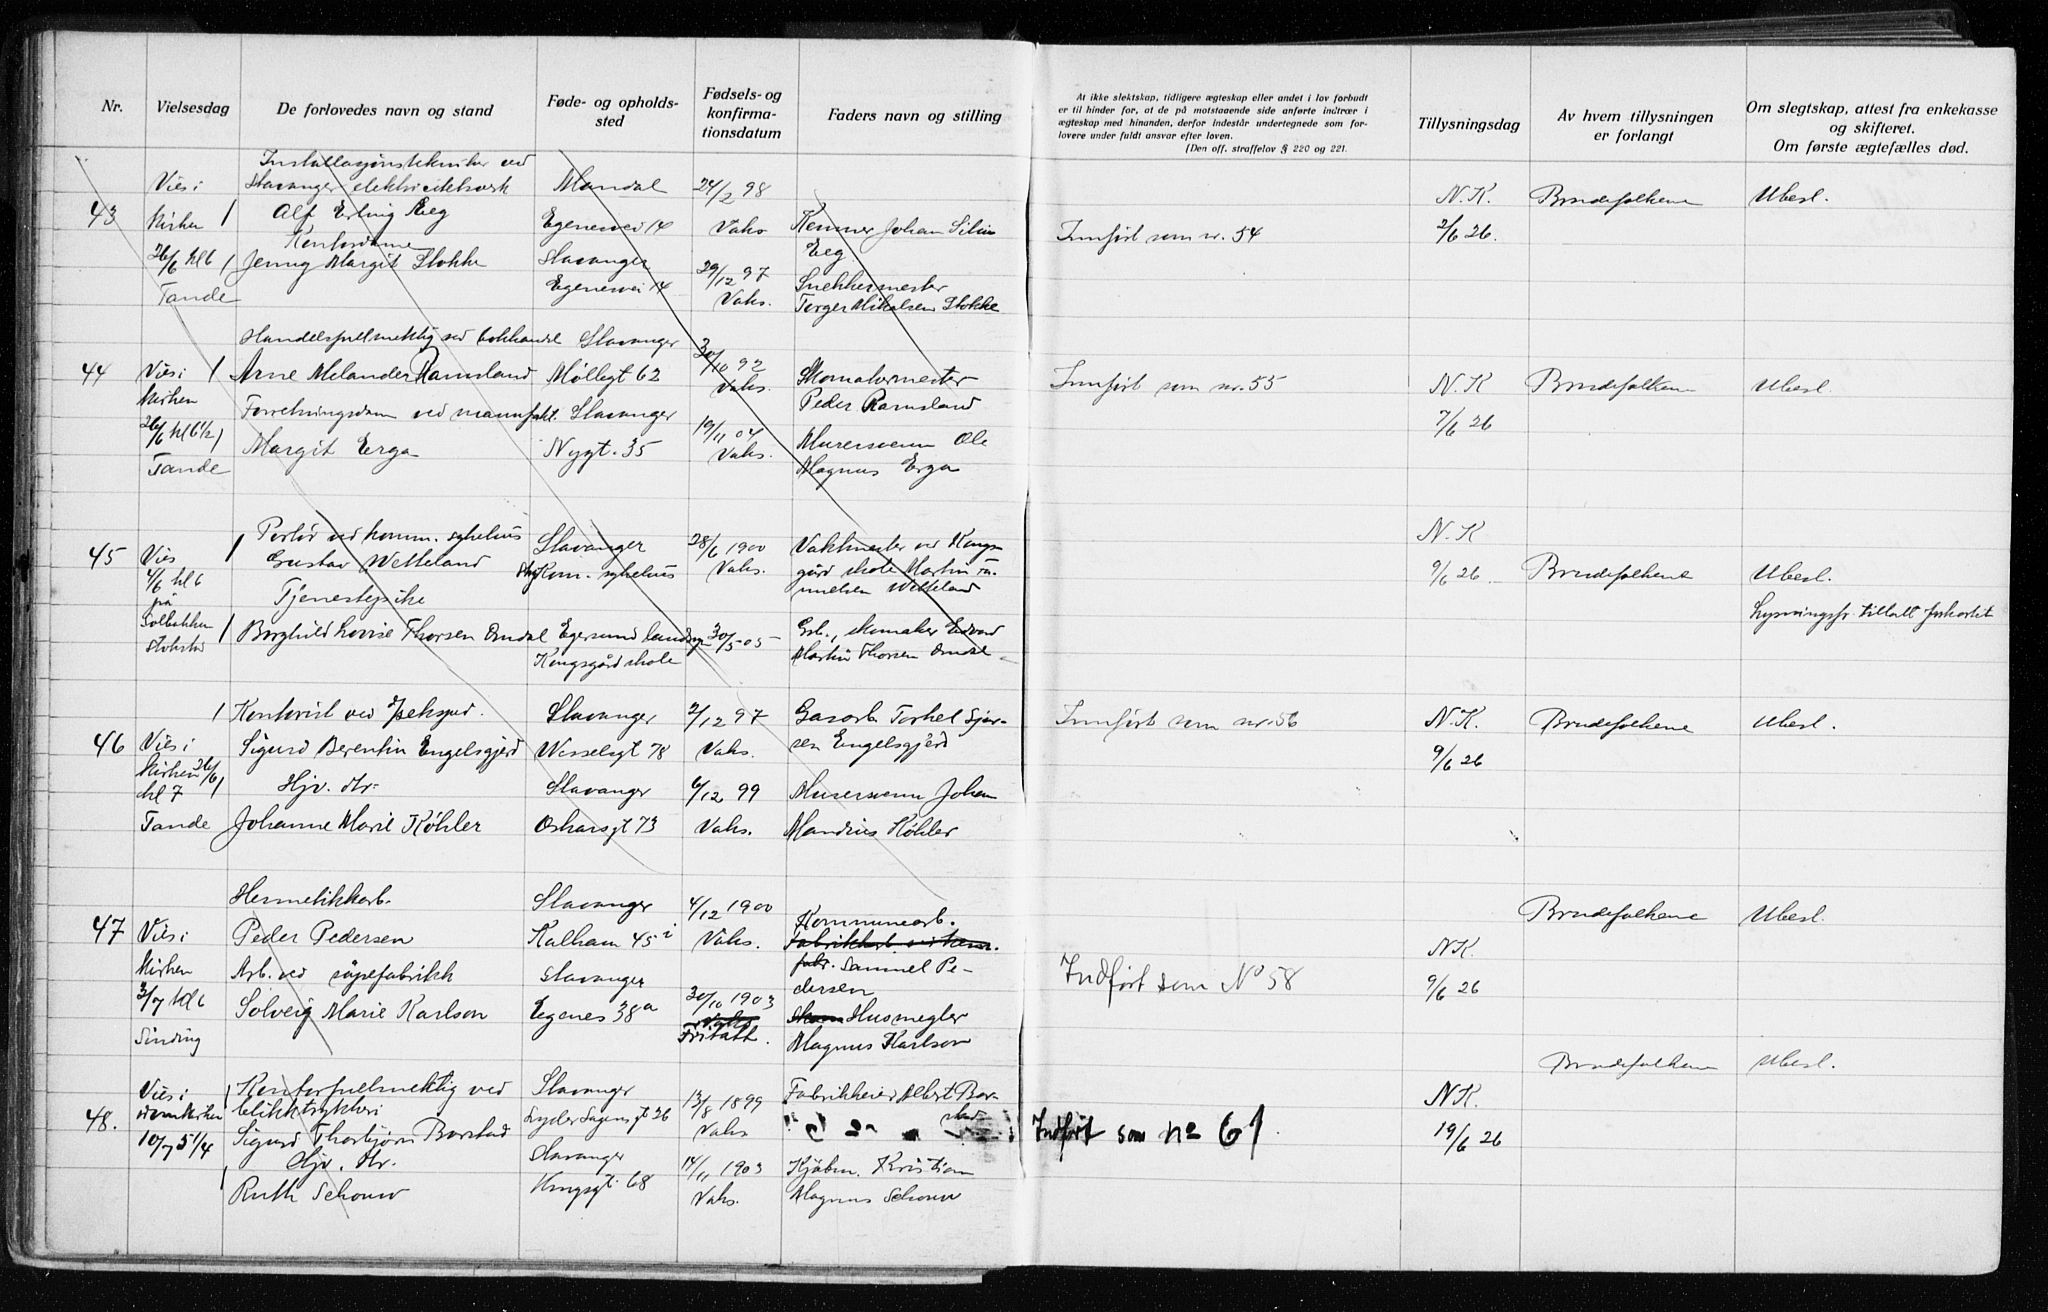 Nr.
Vielsesdag
De forlovedes navn og stand
Føde- og opholds-
sted
Fødsels- og
konfirma-
tionsdatum
Faders navn og stilling
At ikke slektskap, tidligere ægteskap eller andet i lov forbudt
er til hinder for, at de på motstaaende side anførte indtrær i
ægteskap med hinanden, derfor indestår undertegnede som for-
lovere under fuldt ansvar efter loven.
(Den off. straffelov § 220 og 221.
Tillysningsdag
Av hvem tillysningen
er forlangt
Om slegtskap, attest fra enkekasse
og skifteret.
Om første ægtefælles død.
43
Vies i
kirken
26/6 kl 6
Tande
Installasjonstekniker ved
Stavanger elektricitetsverk
Alf Erling Eeg
Kontordame
Jenny Margit Stokke
Mandal
Egenesvei 14
Stavanger
Egenesvei 14
24/2 98
Vaks.
29/12 97
Vaks.
Kemner Johan Silius
Eeg
Snekkermester
Torger Mikalsen Stokke
Innført som nr. 54
N.K.
2/6 26.
Brudefolkene
Ubesl.
44
Vies i
kirken
26/6 kl 6 1/2
Tande
Handelsfullmektig ved bokhandel
Arne Melander Ramsland
Forretningsdam ved manufakt.
Margit Erga
Stavanger
Møllegt 62
Stavanger
Nygt. 35
30/10 92
Vaks.
19/11 04
Vaks.
Skomakermester
Peder Ramsland
Murersvenn Ole
Magnus Erga
Innført som nr. 55
N.K
7/6 26
Brudefolkene
Ubesl.
45
Vies
4/6 kl 6
på
Solbakken
Stokka
Portør ved komm. sykehus
Gustav Wetteland
Tjenestepike
Borghild Lovise Thorsen Omdal
Stavanger
Kom. sykehus
Egersund landsogn
Kongsgård skole
28/6 1900
Vaks.
30/5 05
Vaktmester ved Kongs-
gård skole Martin Tø-
nnesen Wetteland
Grb., skomaker Edvard
Martin Thorsen Omdal
N.K
9/6 26
Brudefolkene
Ubesl.
Lysningsfr. tillatt forkortet
46
Vies i
kirken 26/6
kl 7
Tande
Kontorist ved
Sigurd Berentin Engelsgjerd
Hjv. dtr.
Johanne Marie Køhler
Stavanger
Wesselsgt 78
Stavanger
Oskarsgt 73
2/12 97
Vaks.
6/12 99
Vaks.
Gasarb. Torkel Sjur-
sen Engelsgjerd
Murersvenn Johan
Mandius Køhler
Innført som nr. 56
N.K.
9/6 26
Brudefolkene
Ubesl.
47
Vies i
kirken
3/7 kl 6
Sinding
Hermetikkarb.
Peder Pedersen
Arb. ved såpefabrikk
Solveig Marie Karlson
Stavanger
Kalham 45 i
Stavanger
Egenes 38a
4/12 1900
Vaks.
30/10 1903
Vaks
Fritatt.
Kommunearb.
fabr. Samuel Pe-
dersen
Husmegler
Magnus Karlson
Indført som No 58
N.K.
9/6 26
Brudefolkene
Ubesl.
48.
Vies i
10/7 5 1/4
Kontorfullmektig ved
blikktrykkeri
Sigurd Thorbjørn Borstad
Hjv. dtr.
Ruth Schouw
Stavanger
Lyder Sagensgt 26
Stavanger
Kongsgt. 68
13/8 1899
Vaks
14/11 1903
Vaks.
Fabrikkeier Albert Bor-
stad
Kjøbm. Kristian
Magnus Schouw
Indført som no 61
N.K.
19/6 26
Brudefolkene
Ubesl.